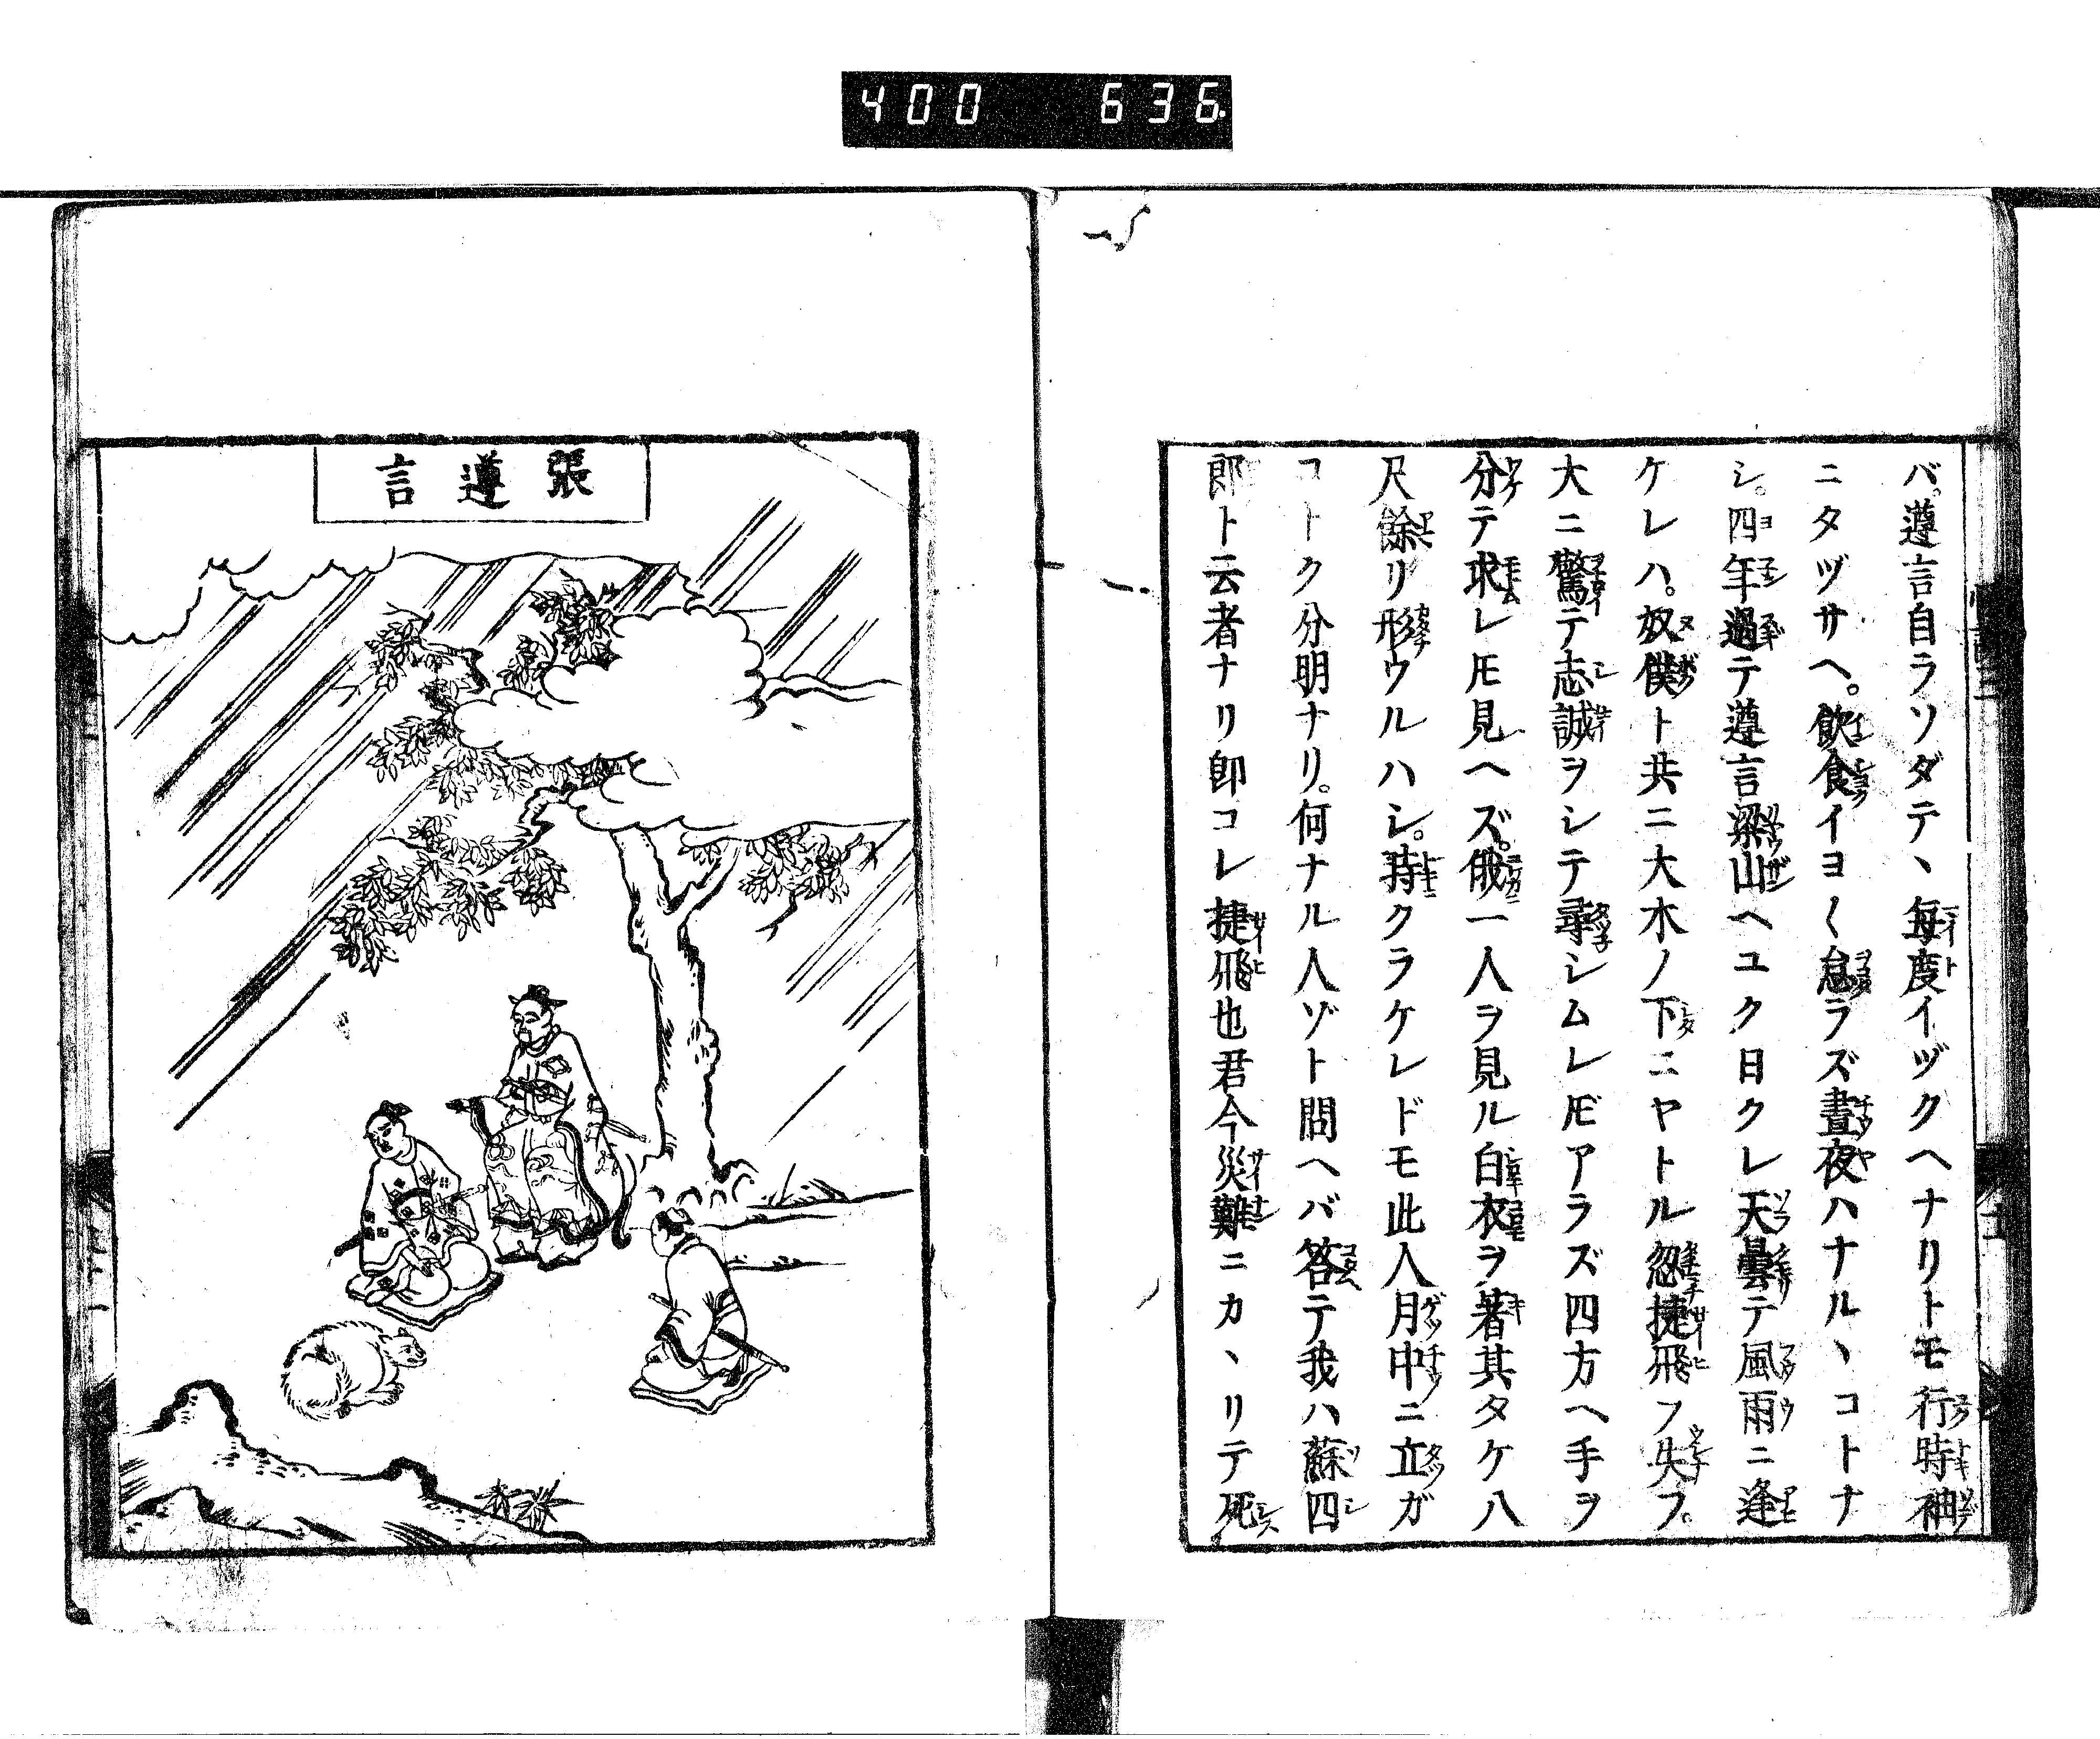 400 636
バ。遵言自ラソダテヽ毎度イヅクヘナリトモ行時袖
ニタヅサヘ。飲食イヨ〱怠ラズ晝夜ハナルヽコトナ
シ。四年過テ遵言梁山ヘユク日クレ天曇テ風雨ニ逢
ケレハ。奴僕ト共ニ大木ノ下ニヤトル忽捷飛フ失フ。
大ニ驚テ志誠ヲシテ尋シムレ𪜈アラズ四方ヘ手ヲ
分テ求レ𪜈見ヘズ。俄一人ヲ見ル白衣ヲ著其タケ八
尺餘リ形ウルハシ。時クラケレドモ此人月中ニ立ガ
コトク分明ナリ。何ナル人ゾト問ヘバ答テ我ハ蘇四
郎ト云者ナリ卽コレ捷飛也君今災難ニカヽリテ死
張遵言